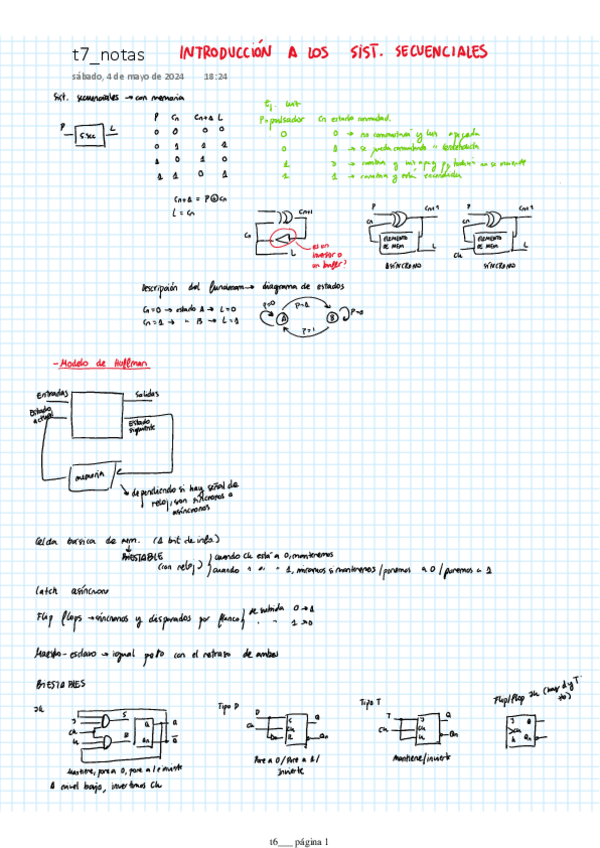 t7_notas INTRODUCCIÓN A LOS SIST. SECUENCIALES
sábado, 4 de mayo de 2024 18:24
Sist. secuenciales → con memoria
P Cn Cn+1 L
0 0 0 0
0 1 1 1
1 0 1 0
1 1 0 1
P L
S. sec
Ej. luz
P=pulsador Cn estado conmutad.
0 0 → no conmutará y luz apagada
1 1 → conmuta y está encendida
Cn+1 = P⊕Cn
L = Cn
Cn+1
Cn
L
es un inversor o un buffer?
P Cn+1
ELEMENTO DE MEM
L
ASÍNCRONO
P Cn+1
ELEMENTO DE MEM
Clk
L
SÍNCRONO
Descripción del funcionam → diagrama de estados
Cn=0 → estado A → L=0
Cn=1 → " B → L=1
P=0 P=1 A B P=0 P=1
- Modelo de Huffman
Entradas Salidas
Estado actual
Estado siguiente
memoria
dependiendo si hay señal de reloj, son síncronos o asíncronos
Celda básica de mem. (1 bit de info)
BIESTABLE
(con reloj) cuando Clk está a 0, mantenemos
cuando " " " 1, miramos si mantenemos / ponemos a 0 / ponemos a 1
Latch asíncrono
Flip flops → síncronos y disparados por flanco de subida 0→1
" " 1→0
Maestro-esclavo → igual pero con el retraso de ambos
BIESTABLES
JK
J
Clk
K
S
R
Q
Q
Mantiene, pone a 0, pone a 1 e invierte
A nivel bajo, invertimos Clk
Tipo D
D
Clk
Q
Qn
Pone a 0 / Pone a 1 /
Invierte
Tipo T
T
Clk
J
K
Q
Qn
Mantiene/invierte
Flip/Flop JK
J
Clk
K
Q
t6___ página 1